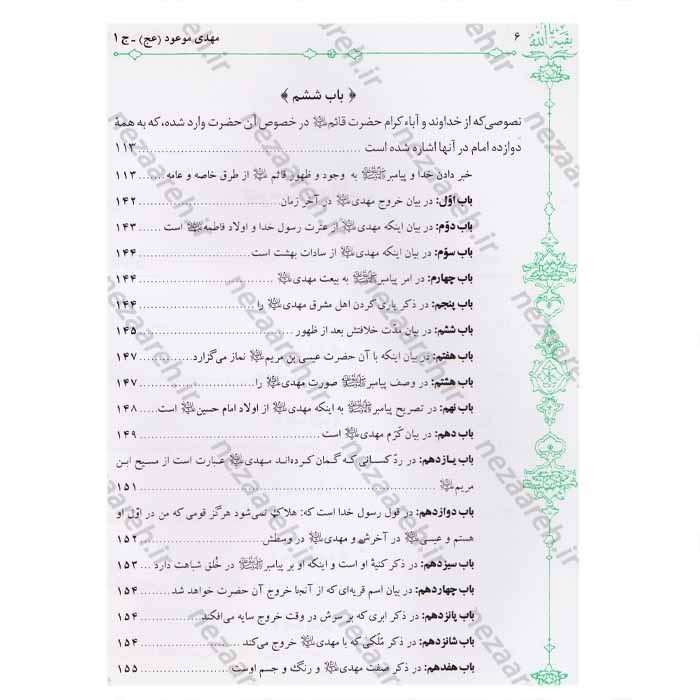 بقیة الله
۶
مهدی موعود (عج) - ج ۱
﴿ باب ششم ﴾
نصوصی که از خداوند و آباء کرام حضرت قائم در خصوص آن حضرت وارد شده، که به همهٔ
دوازده امام در آنها اشاره شده است ........ ۱۱۳
خبر دادن خدا و پیامبر به وجود و ظهور قائم از طرق خاصه و عامه ....... ۱۱۳
باب اوّل: در بیان خروج مهدی در آخر زمان ........ ۱۴۲
باب دوّم: در بیان اینکه مهدی از عترت رسول خدا و اولاد فاطمه است ... ۱۴۳
باب سوّم: در بیان اینکه مهدی از سادات بهشت است ........ ۱۴۴
باب چهارم: در امر پیامبر به بیعت مهدی ........ ۱۴۴
باب پنجم: در ذکر یاری کردن اهل مشرق مهدی را ........ ۱۴۴
باب ششم: در بیان مدّت خلافتش بعد از ظهور ........ ۱۴۵
باب هفتم: در بیان اینکه با آن حضرت عیسی بن مریم نماز می‌گزارد ........ ۱۴۷
باب هشتم: در وصف پیامبر صورت مهدی را ........ ۱۴۷
باب نهم: در تصریح پیامبر به اینکه مهدی از اولاد امام حسین است .... ۱۴۸
باب دهم: در بیان کَرَم مهدی است ........ ۱۴۹
باب یازدهم: در ردّ کسانی که گمان کرده‌اند مهدی عبارت است از مسیح ابن
مریم ........ ۱۵۱
باب دوازدهم: در قول رسول خدا است که: هلاک نمی‌شود هرگز قومی که من در اوّل او
هستم و عیسی در آخرش و مهدی در وسطش ........ ۱۵۲
باب سیزدهم: در ذکر کنیهٔ او است و اینکه او بر پیامبر در خُلق شباهت دارد ... ۱۵۳
باب چهاردهم: در بیان اسم قریه‌ای که از آنجا خروج آن حضرت خواهد شد ........ ۱۵۴
باب پانزدهم: در ذکر ابری که بر سرش در وقت خروج سایه می‌افکند ........ ۱۵۴
باب شانزدهم: در ذکر مَلَکی که با مهدی خروج می‌کند ........ ۱۵۴
باب هفدهم: در ذکر صفت مهدی و رنگ و جسم اوست ........ ۱۵۵
nezaareh.ir